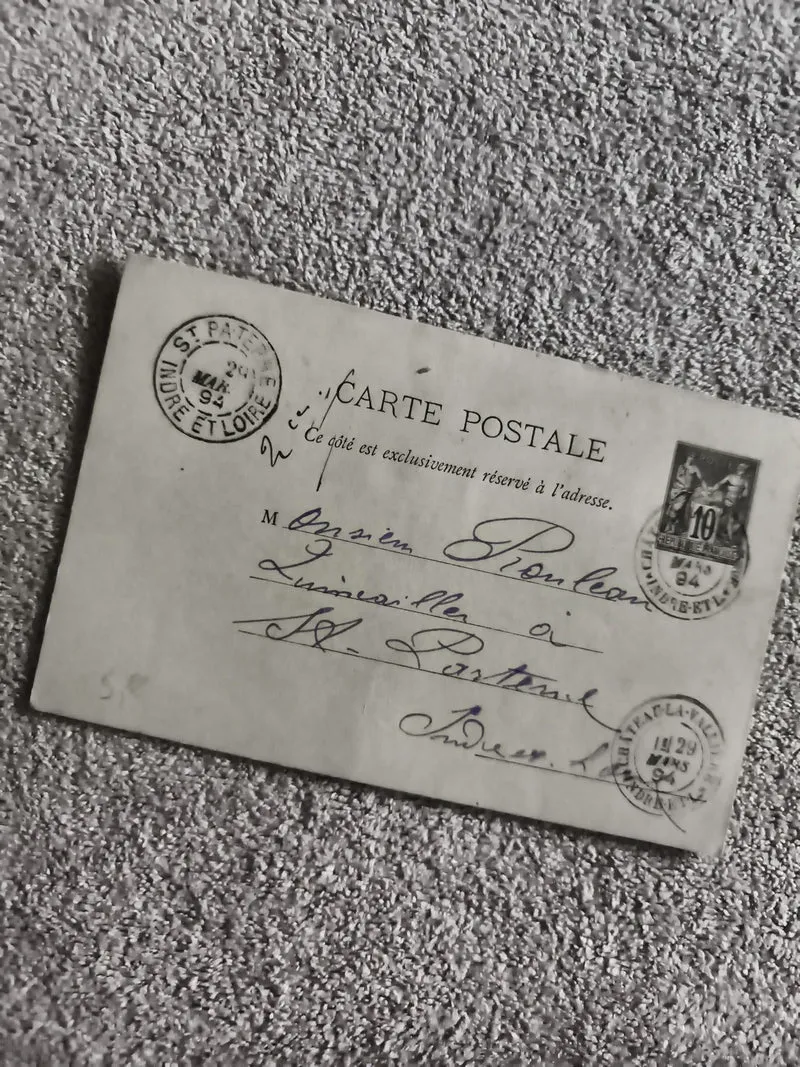 ST PATERNE
29
MAR.
94
INDRE ET LOIRE
CARTE POSTALE
Ce côté est exclusivement réservé à l'adresse.
10
MARS
94
INDRE-ET-L
Monsieur Rouleau
Quincailler à
St. Paterne
Indre et
CHÂTEAU-LA-VALLIÈRE
1E 29
MARS
94
INDRE-ET-L